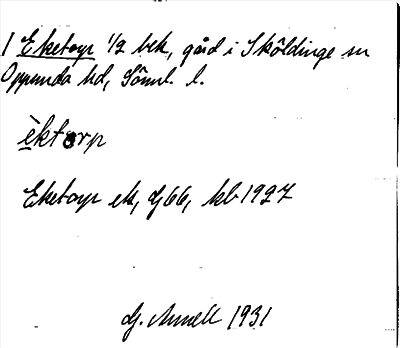 1 Eketorp 1/2 bek, gård i Sköldinge sn
Oppunda hd, Söml. l.
èktorp
Eketorp ek, dj 66, kb 1927
G. Annell 1931